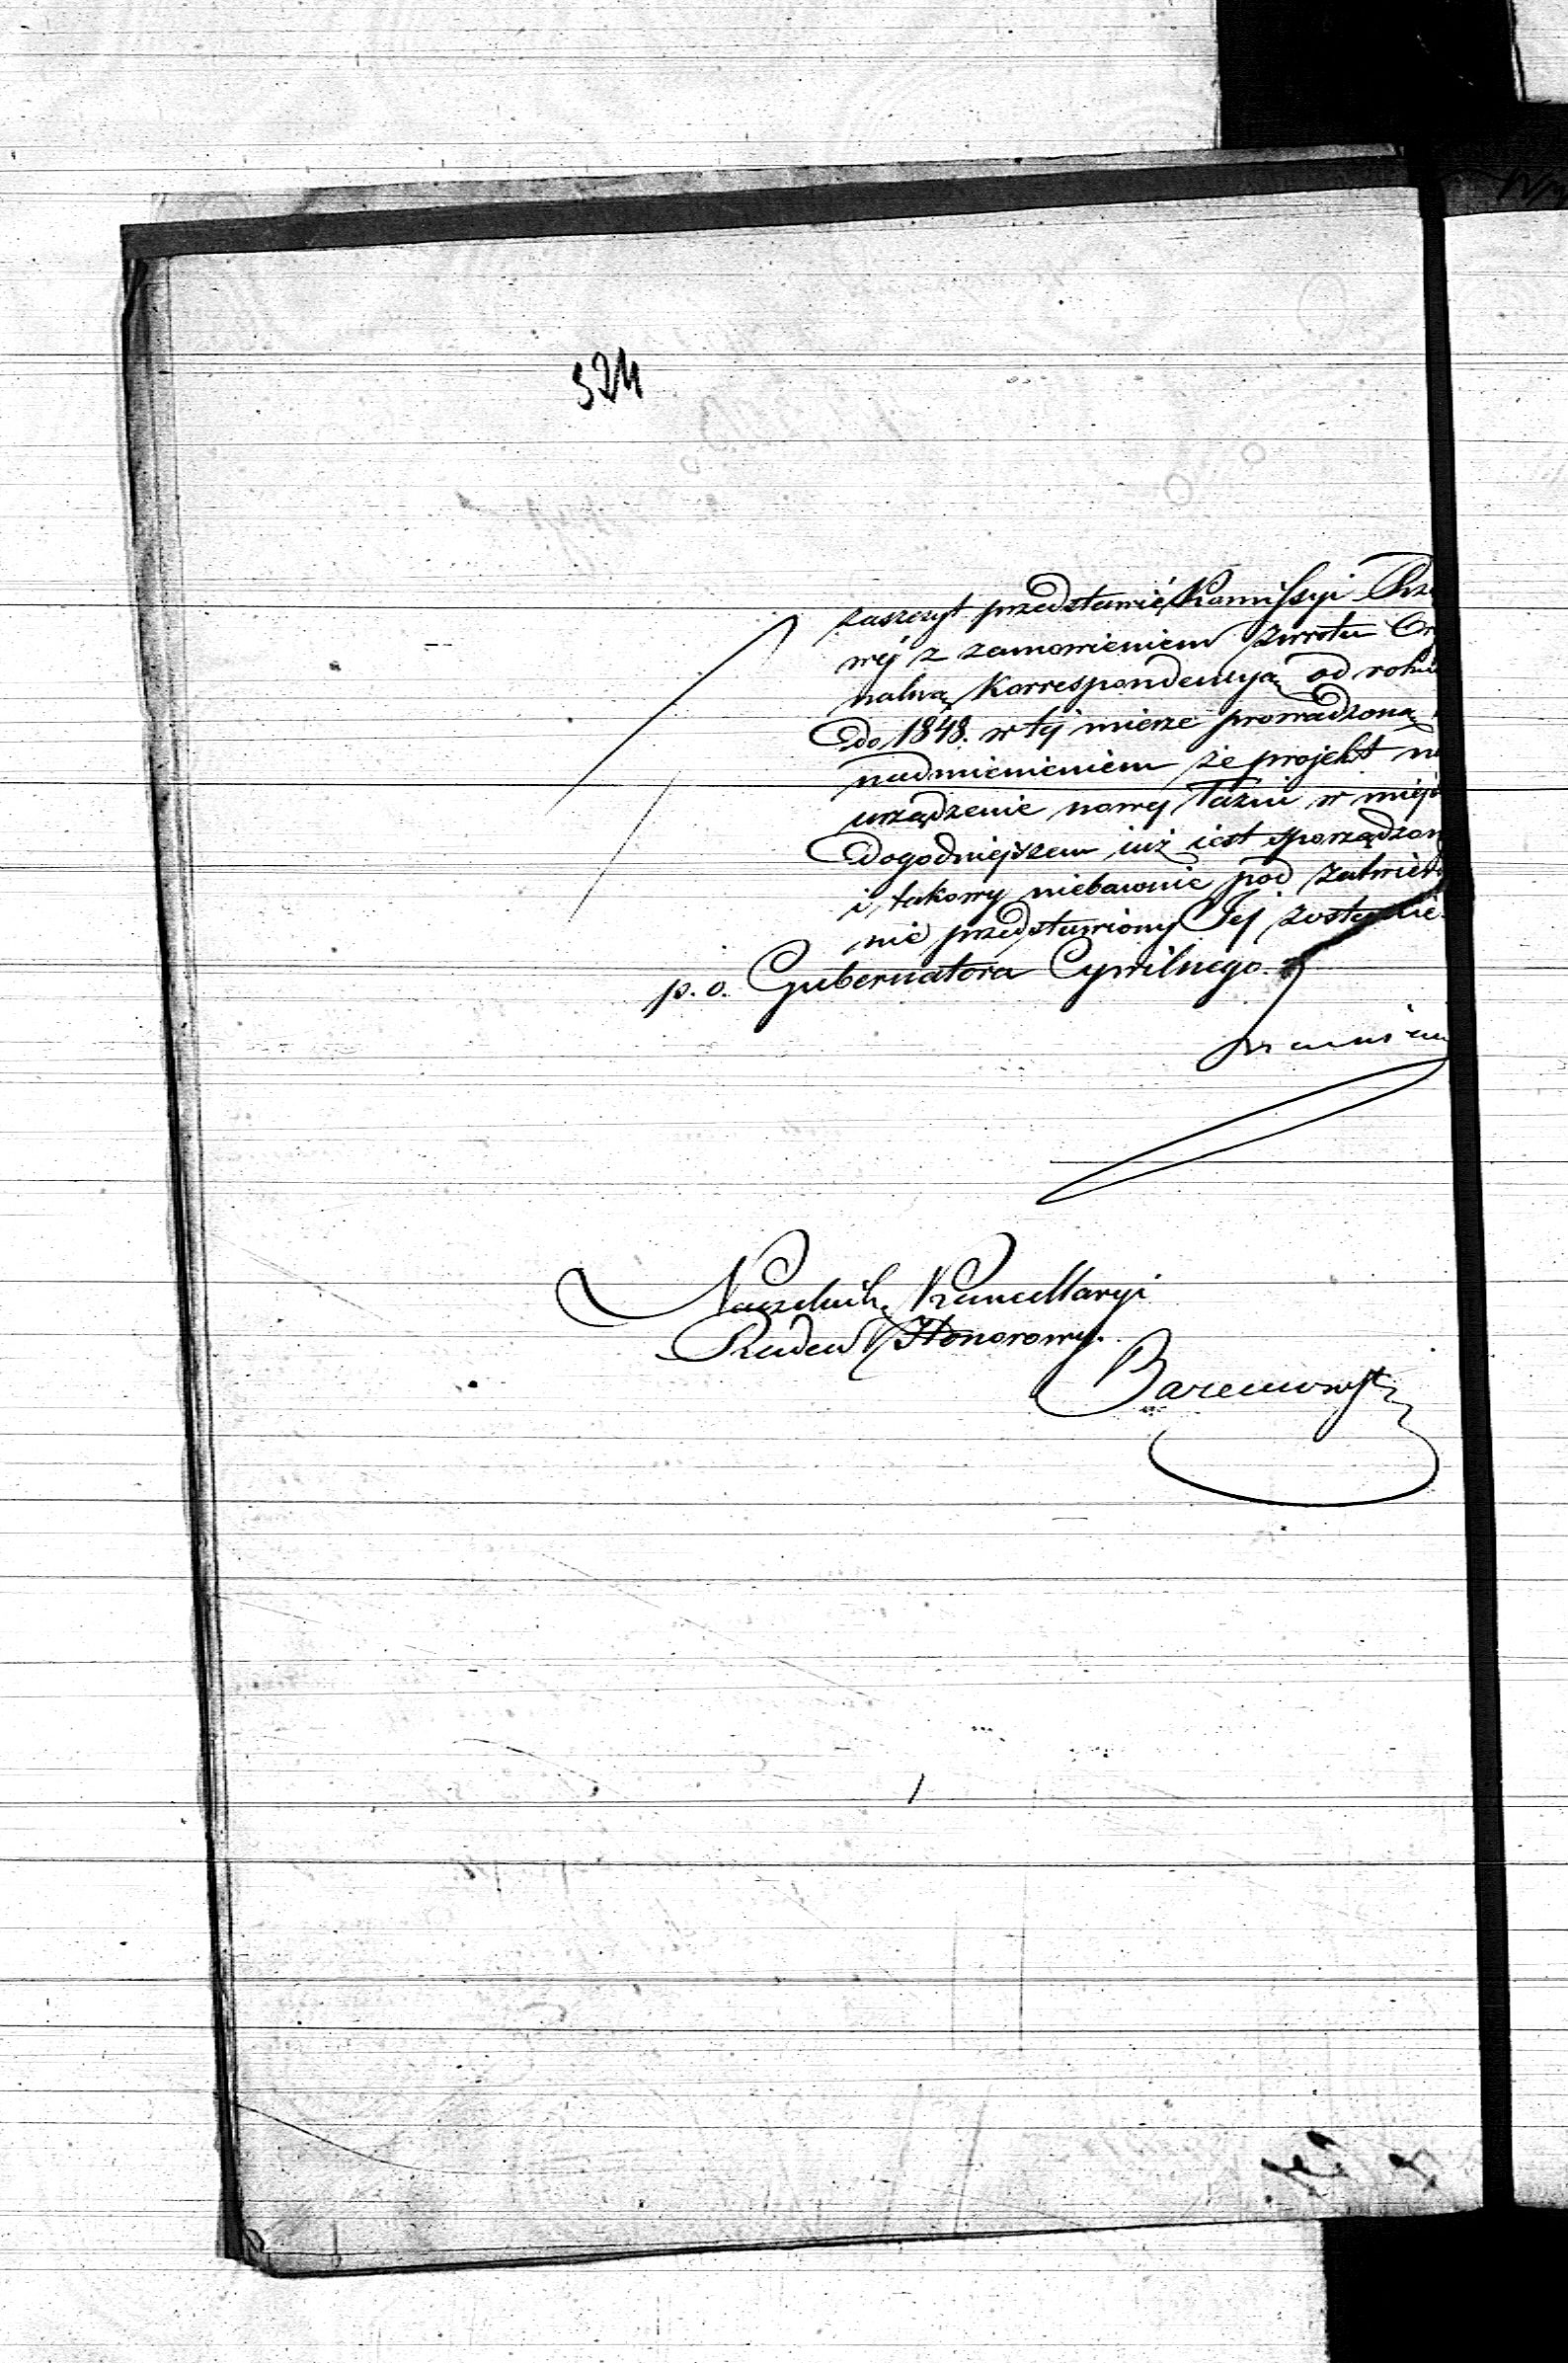 324
zaszczyt przedstawić Kommissyi Rzą
wéj z zamowieniem zwrotu Ory
nalną Korrespondencyą od roku
do 1848. w téj mierze prowadzoną
nadmienieniem że projekt na
urządzenie nowej łaźni w miejs
dogodniejszem iuż iest sporządzony
i takowy niebawnie pod zatwier
nie przedstawiony Jej zostanie
p. o. Gubernatora Cywilnego.
Naczelnik Kancellaryi
Radca Honorowy.